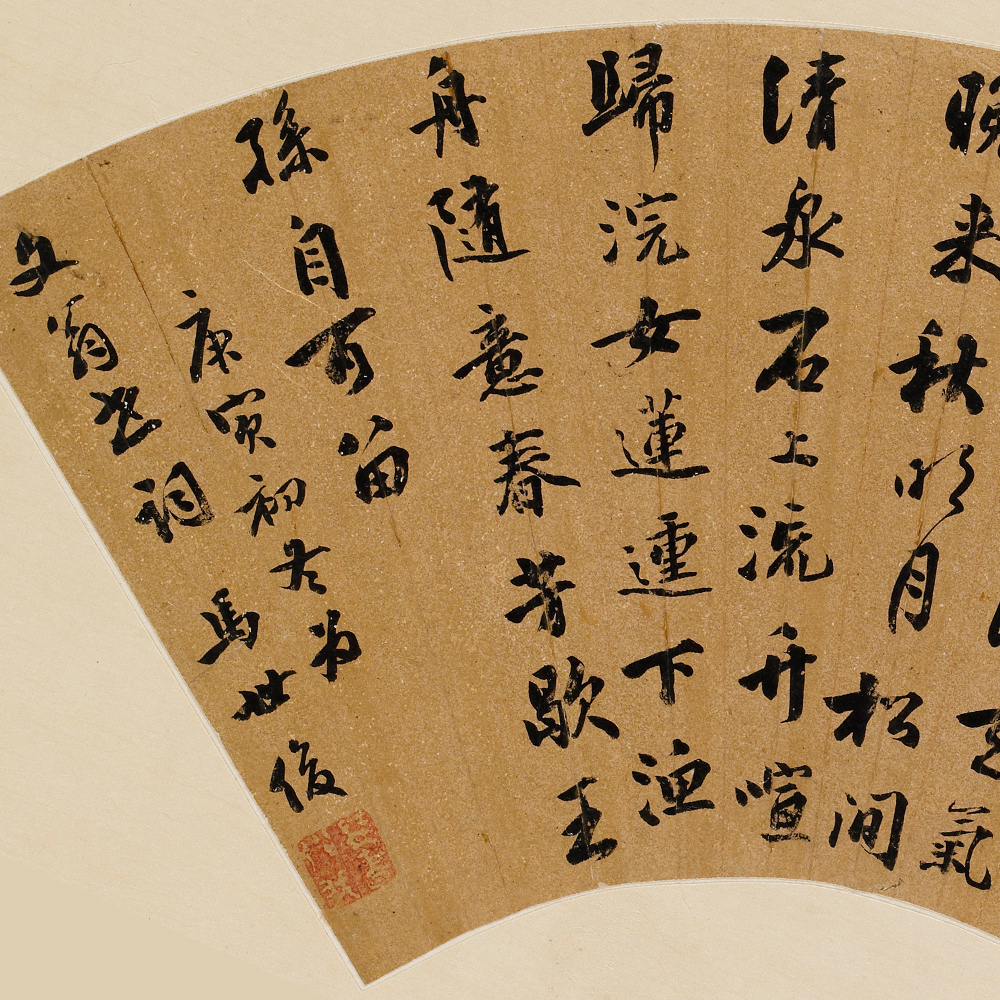 氣
晚来秋明月松间
清泉石上流竹喧
歸浣女蓮動下漁
舟隨意春芳歇王
孫自可留
庚寅初冬为
翁老詞
馬世俊